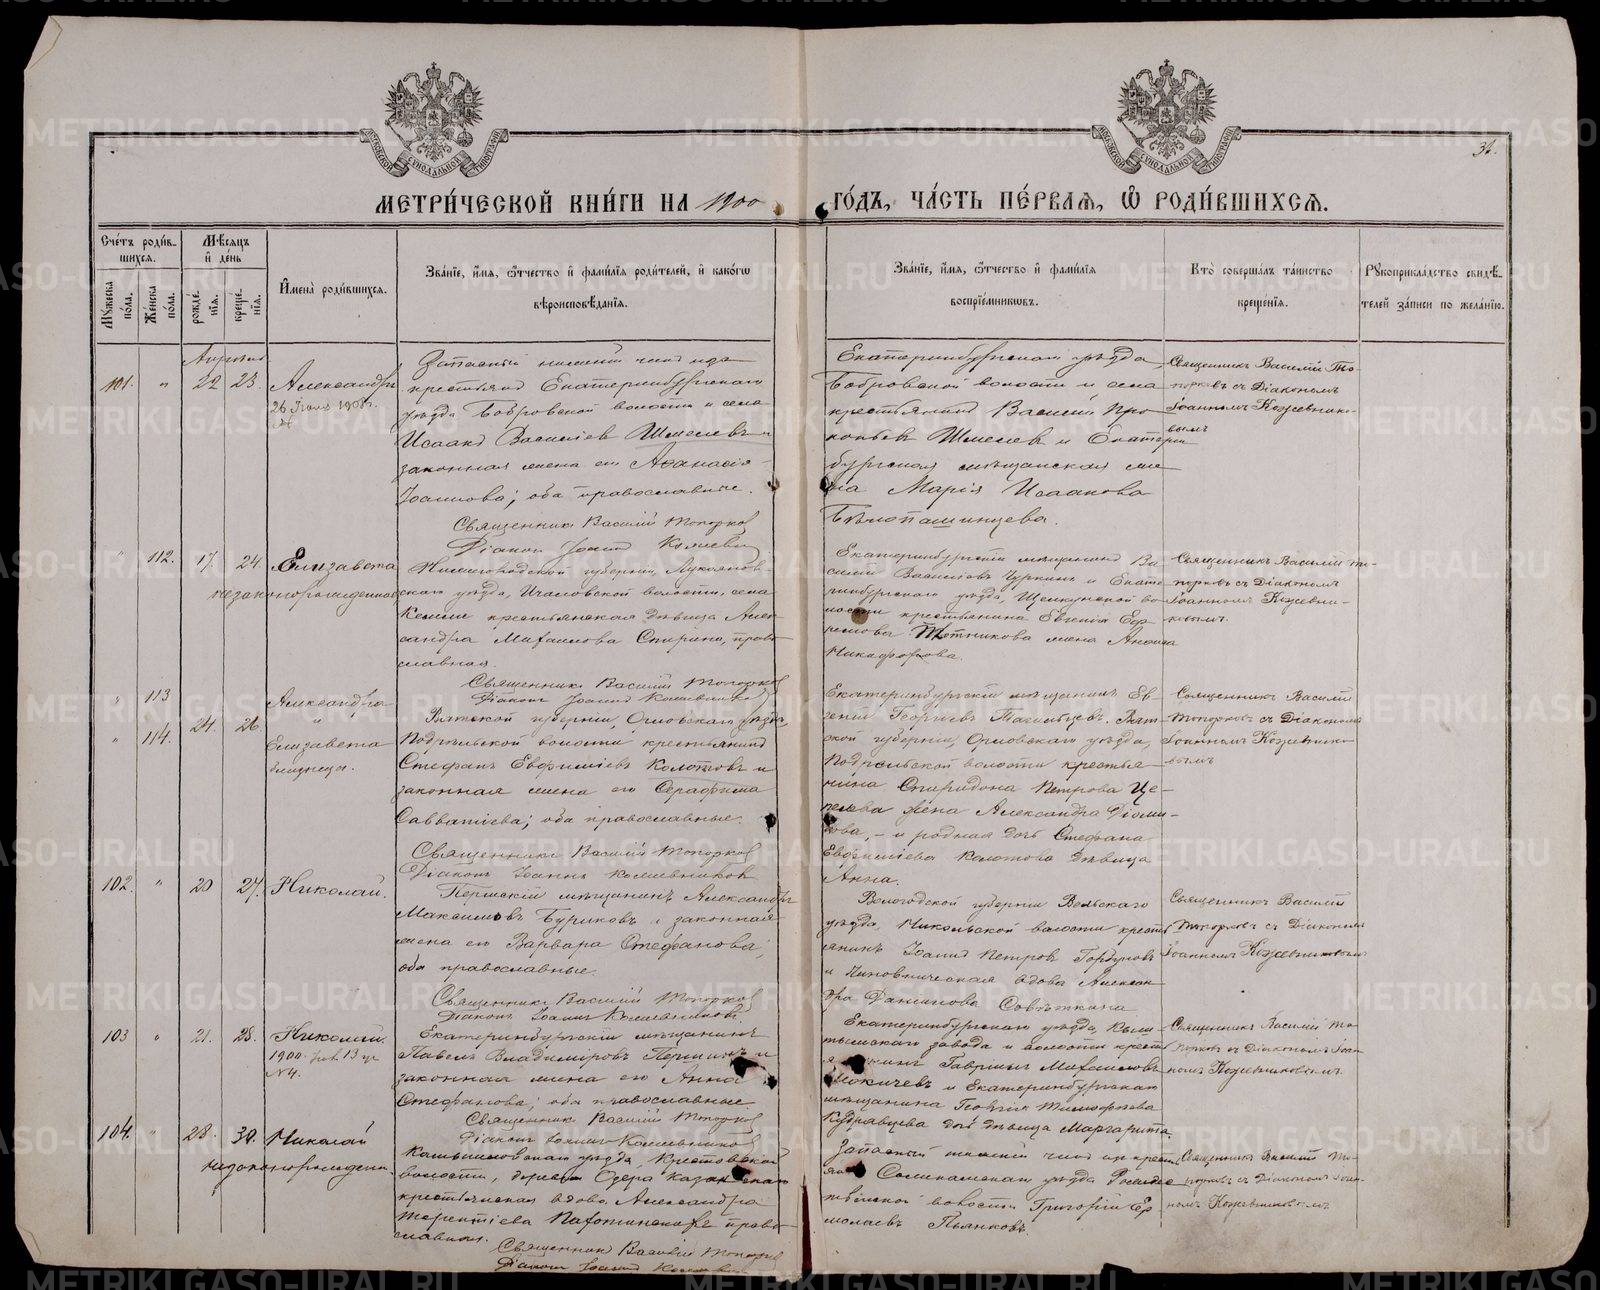 МЕТРИ́ЧЕСКОЙ КНИ́ГИ НА 1900 ГО́ДЪ, ЧА́СТЬ ПЕ́РВАѦ, Ѡ҆ РОДИ́ВШИХСѦ.
31.
Сче́тъ роди́в-
шихсѧ.
Мꙋжеска по́ла.
Же́нска по́ла.
Мѣ́сѧцъ
и҆ де́нь
рожде́-
нїѧ.
креще́-
нїѧ.
И҆мена̀ роди́вшихсѧ.
Зва́нїе, и҆́мѧ, ѻ҆́тчество и҆ фами́лїѧ роди́телей, и҆ како́гѡ
вѣроисповѣ́данїѧ.
Зва́нїе, и҆́мѧ, ѻ҆́тчество и҆ фами́лїѧ
воспрїе́мникѡвъ.
Кто̀ соверша́лъ та́инство
креще́нїѧ.
Рꙋкоприкла́дство свидѣ́-
телей за́писи по жела́нїю.
Апрѣль
101. " 22 23. Александръ
26 Іюля 1908 г.
Запасный нижній чинъ изъ
крестьянъ Екатеринбургскаго
уѣзда Бобровской волости и села
Исаакъ Васильевъ Шмелевъ и
законная жена его Афанасія
Іоаннова; оба православные.
Священникъ Василій Топорковъ
Діаконъ Іоаннъ Кожевниковъ
Екатеринбургскаго уѣзда
Бобровской волости и села
крестьянинъ Василій Про-
копьевъ Шмелевъ и Екатерин-
бургская мѣщанская же-
на Марія Исаакова
Бѣлопашинцева.
Священникъ Василій То-
порковъ съ Діакономъ
Іоанномъ Кожевнико-
вымъ
" 112. 17. 24. Елизавета
незаконорожденная
Нижегородской губерніи, Лукоянов-
скаго уѣзда, Ичаловской волости, села
Кемли крестьянская дѣвица Алек-
сандра Михаилова Спирина, право-
славная.
Священникъ Василій Топорковъ
Діаконъ Іоаннъ Кожевниковъ
Екатеринбургскій мѣщанинъ Ва-
силій Васильевъ Чуркинъ и Екате-
ринбургскаго уѣзда, Щелкунской во-
лости крестьянина Евгенія Еф-
ремова Плотникова жена Анфиса
Никифорова.
Священникъ Василій То-
порковъ съ Діакономъ
Іоанномъ Кожевни-
ковымъ.
" 113 Александра
" 114. 24. 26. "
Елизавета
близнецы.
Вятской губерніи, Орловскаго уѣзда,
Подрѣльской волости крестьянинъ
Стефанъ Евфиміевъ Колотовъ и
законная жена его Серафима
Савватіева; оба православные.
Священникъ Василій Топорковъ
Діаконъ Іоаннъ Кожевниковъ
Екатеринбургскій мѣщанинъ Ев-
геній Георгіевъ Тагильцевъ. Вят-
ской губерніи, Орловскаго уѣзда,
Подрѣльской волости крестья-
нина Спиридона Петрова Це-
пелева жена Александра Діоми-
дова, - и родная дочь Стефана
Евфиміева Колотова дѣвица
Анна.
Священникъ Василій
Топорковъ съ Діакономъ
Іоанномъ Кожевнико-
вымъ
102. " 20 27. Николай.
Пермскій мѣщанинъ Александръ
Максимовъ Буриковъ и законная
жена его Варвара Стефанова;
оба православные.
Священникъ Василій Топорковъ
Діаконъ Іоаннъ Кожевниковъ
Вологодской губерніи Вельскаго
уѣзда, Никольской волости кресть-
янинъ Іоаннъ Петровъ Горбуновъ
и Чиновническая вдова Алексан-
дра Данилова Совѣткина
Священникъ Василій
Топорковъ съ Діакономъ
Іоанномъ Кожевниковымъ
103 " 21. 28. Николай.
№4.
Екатеринбургскій мѣщанинъ
Павелъ Владиміровъ Першинъ и
законная жена его Анна
Стефанова; оба православные
Священникъ Василій Топорковъ
Діаконъ Іоаннъ Кожевниковъ
Екатеринбургскаго уѣзда, Кыш-
тымскаго завода и волости кресть-
янинъ Гавріилъ Михаиловъ
Мокичевъ и Екатеринбургскаго
мѣщанина Георгія Тимофѣева
Кудрявцева дочь дѣвица Маргарита.
Священникъ Василій То-
порковъ съ Діакономъ Іоан-
номъ Кожевниковымъ.
104. " 28. 30. Николай
незаконорожден.
Камышловскаго уѣзда, Крестовской
волости, деревни Озера
крестьянская вдова Александра
Терентіева право-
славная.
Священникъ Василій Топорковъ
Діаконъ Іоаннъ Кожевниковъ
Запасный нижній чинъ изъ кресть-
янъ Соликамскаго уѣзда Рождес-
твенской волости Григорій Ер-
молаевъ Пьянковъ.
Священникъ Василій То-
порковъ съ Діакономъ Іоан-
номъ Кожевниковымъ
METRIKI.GASO-URAL.RU